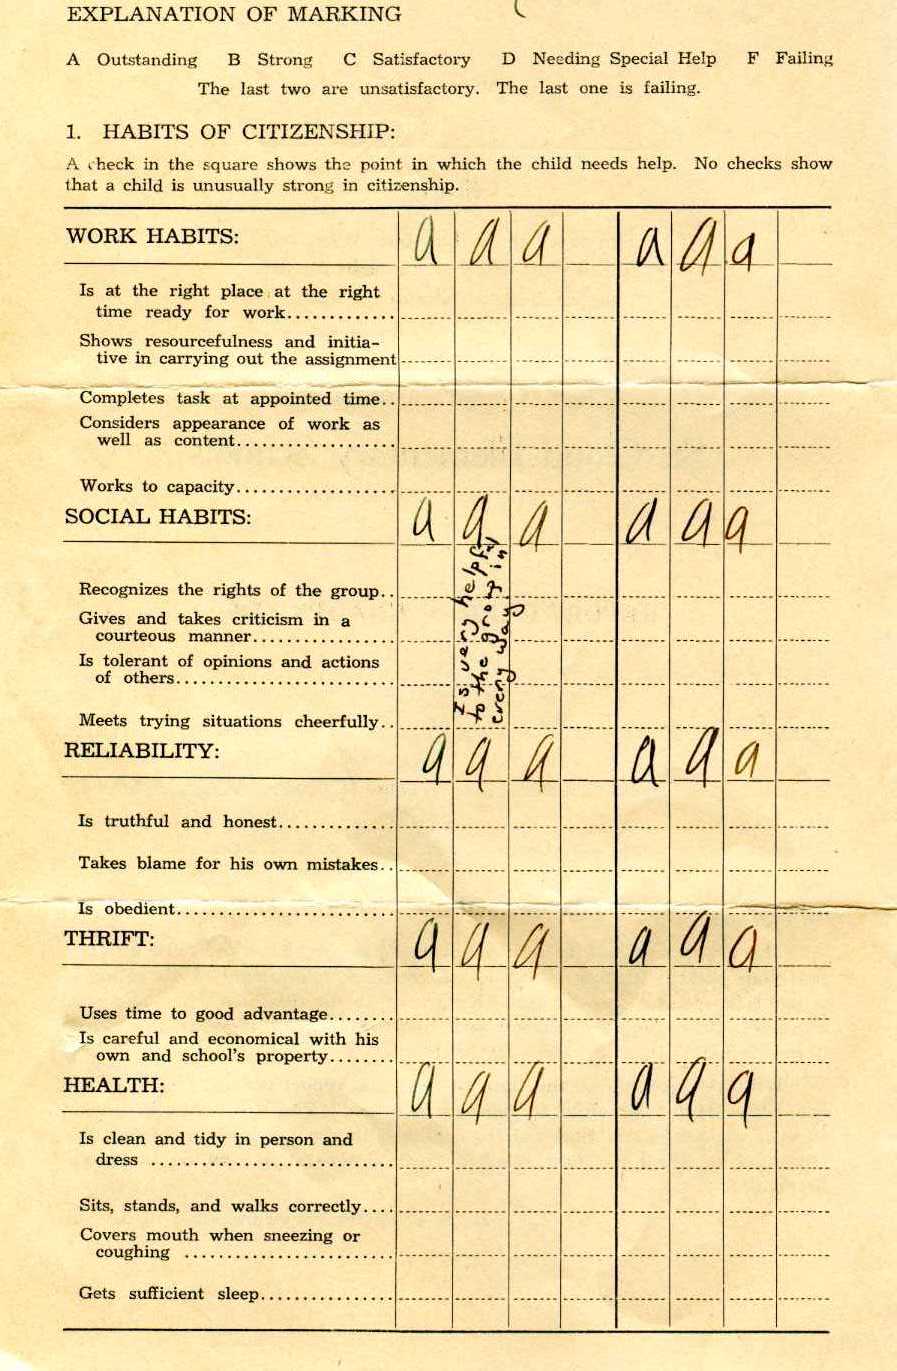 EXPLANATION OF MARKING
A Outstanding B Strong C Satisfactory D Needing Special Help F Failing
The last two are unsatisfactory. The last one is failing.
1. HABITS OF CITIZENSHIP:
A check in the square shows the point in which the child needs help. No checks show
that a child is unusually strong in citizenship.
WORK HABITS: a a a a a a
Is at the right place at the right
time ready for work.............
Shows resourcefulness and initia-
tive in carrying out the assignment
Completes task at appointed time..
Considers appearance of work as
well as content..................
Works to capacity..................
SOCIAL HABITS: a a a a a a
Is very helpful
to the group in
every way
Recognizes the rights of the group..
Gives and takes criticism in a
courteous manner................
Is tolerant of opinions and actions
of others........................
Meets trying situations cheerfully..
RELIABILITY: a a a a a a
Is truthful and honest.............
Takes blame for his own mistakes..
Is obedient........................
THRIFT: a a a a a a
Uses time to good advantage.......
Is careful and economical with his
own and school's property........
HEALTH: a a a a a a
Is clean and tidy in person and
dress ...........................
Sits, stands, and walks correctly....
Covers mouth when sneezing or
coughing .......................
Gets sufficient sleep...............